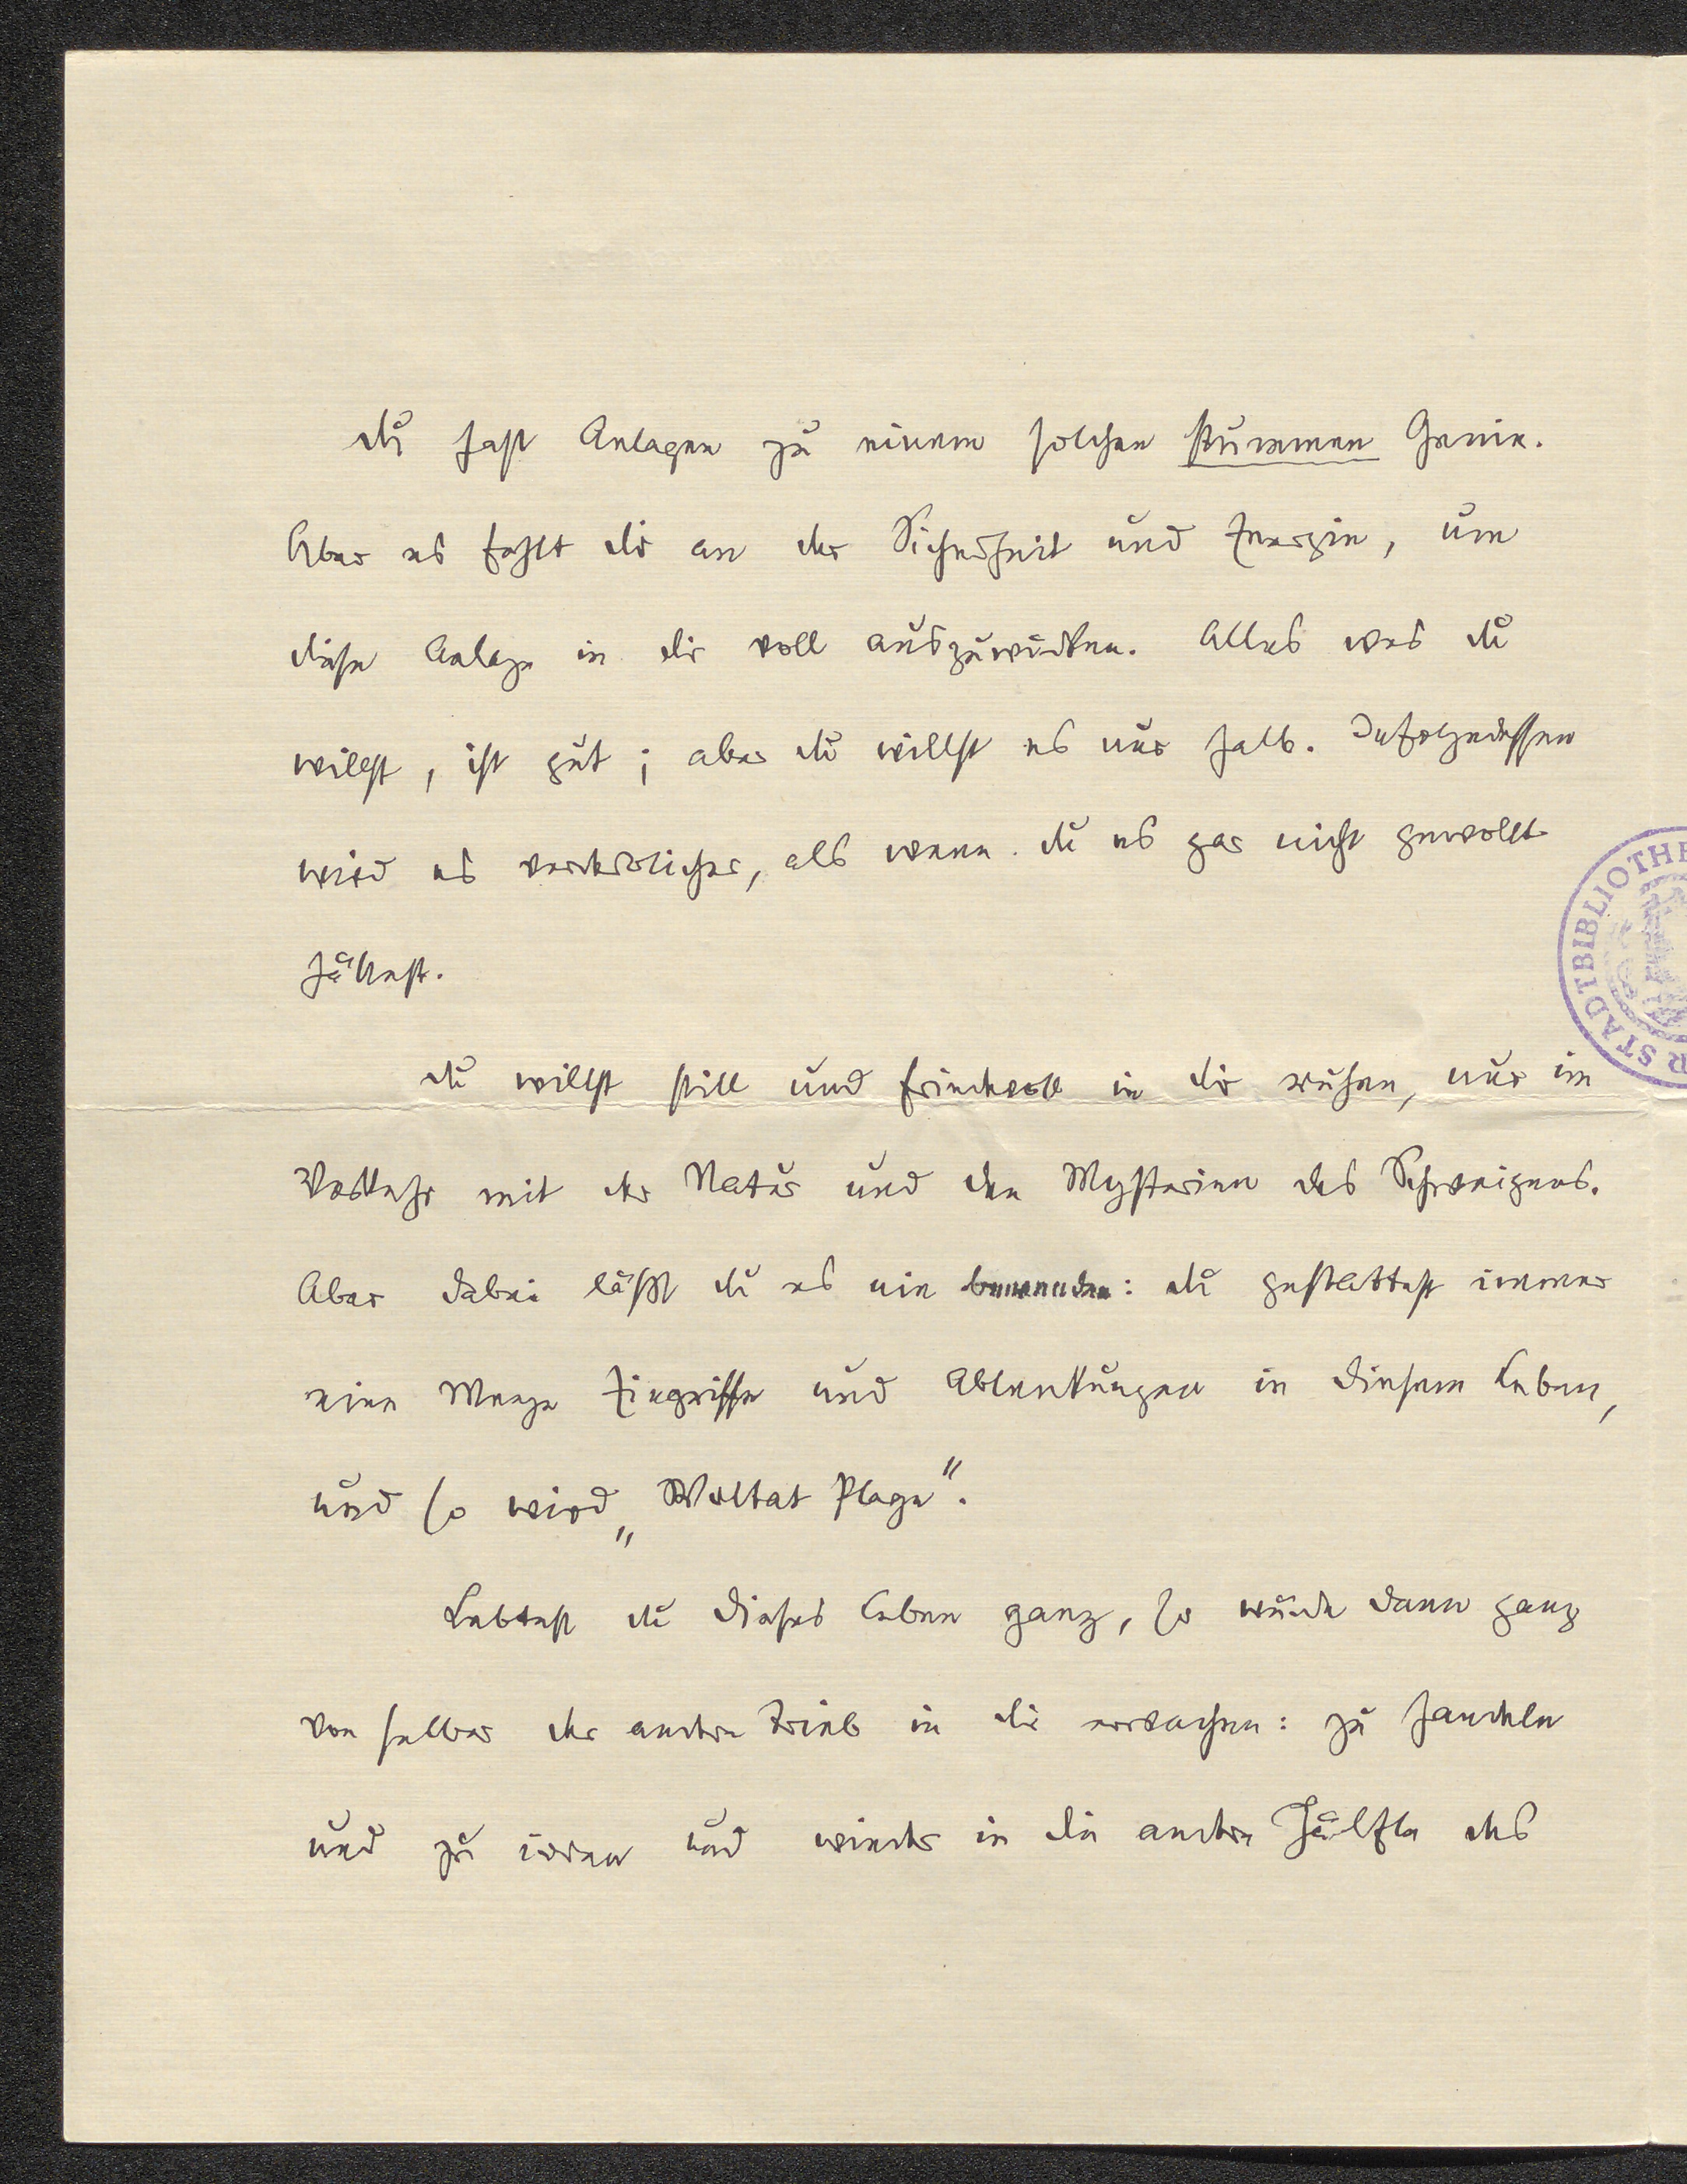 du hast Anlagen zu einem solchen stummen Genie.
Aber es fehlt dir an der Sicherheit und Energie, um
diese Anlage in dir voll auszuwirken. Alles was du
willst, ist gut; aber du willst es nur halb. Infolgedessen
wird es verderblicher, als wenn du es gar nicht gewollt
hättest.
du willst still und friedvoll in dir ruhen, nur im
Verkehr mit der Natur und den Mysterien des Schweigens.
Aber dabei läßt du es nie bewenden: du gestattest immer
eine Menge Eingriffe und Ablenkungen in diesem Leben,
und so wird „Woltat Plage“.
Lebtest du dieses Leben ganz, so würde dann ganz
von selber der andre Trieb in dir erwachen: zu handeln
und zu irren und wieder in die andre Hälfte des
STADTBIBLIOTHE